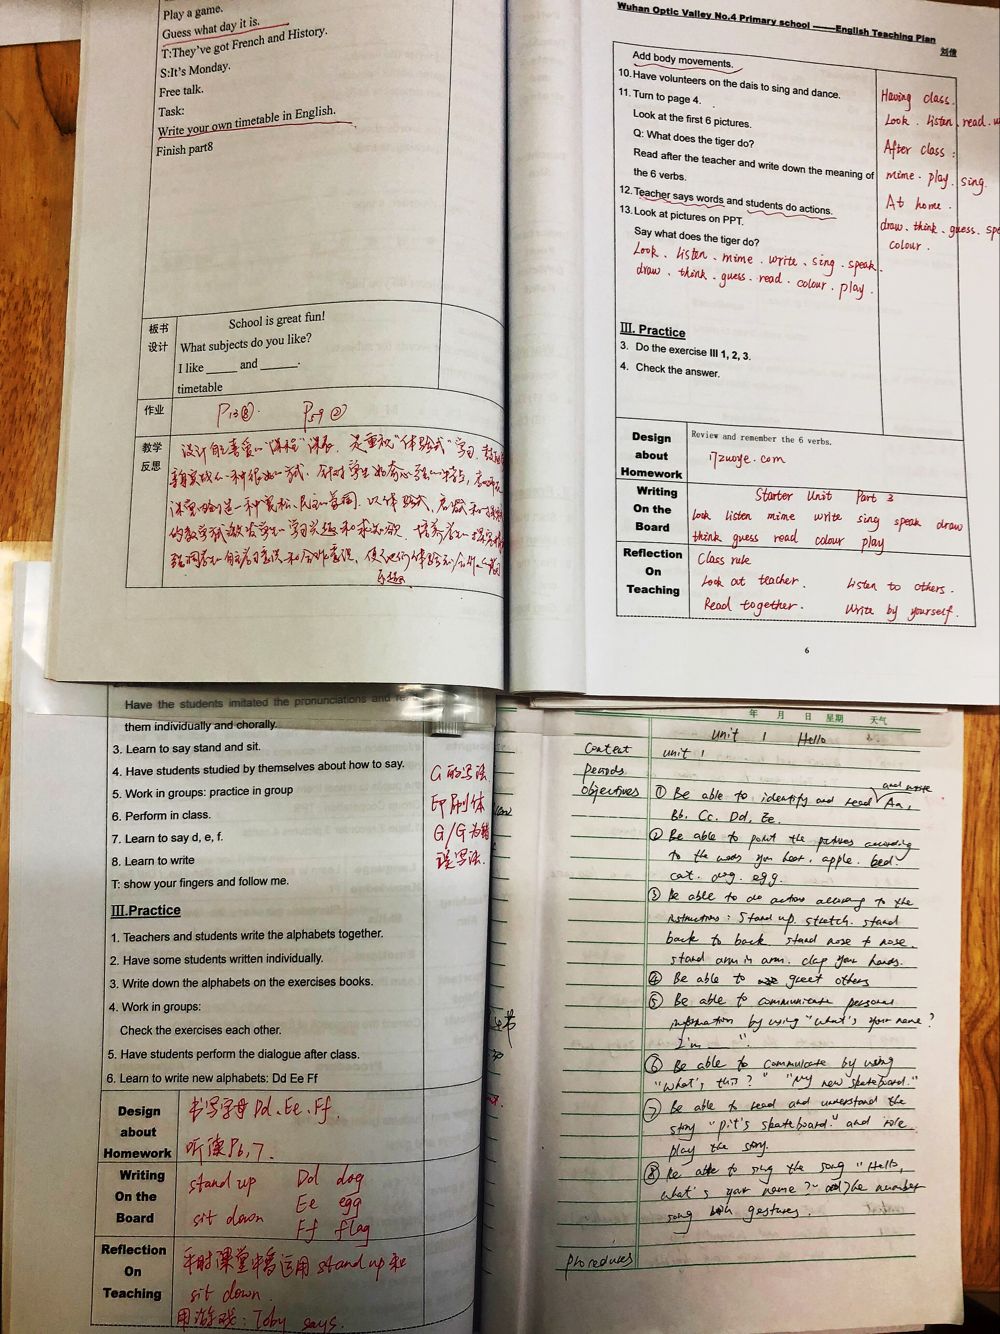 Play a game.
Guess what day it is.
T:They've got French and History.
S:It's Monday.
Free talk.
Task:
Write your own timetable in English.
Finish part8
板书
设计
School is great fun!
What subjects do you like?
I like _____ and _____.
timetable
作业
P13⑧. P59 ②
教学
反思
设计自己喜爱的"课程"课表,是重视"体验式"学习,
Wuhan Optic Valley No.4 Primary school ——English Teaching Plan
Add body movements.
10. Have volunteers on the dais to sing and dance.
11. Turn to page 4.
Look at the first 6 pictures.
Q: What does the tiger do?
Read after the teacher and write down the meaning of
the 6 verbs.
12. Teacher says words and students do actions.
13. Look at pictures on PPT.
Say what does the tiger do?
Look、listen、mime、write、sing、speak、
draw、think、guess、read、colour、play.
Having class.
Look. listen. read.
After class:
mime. play. sing.
At home.
draw. think. guess.
colour.
III. Practice
3. Do the exercise III 1, 2, 3.
4. Check the answer.
Design
about
Homework
Review and remember the 6 verbs.
17zuoye.com
Writing
On the
Board
Starter Unit Part 3
look listen mime write sing speak draw
think guess read colour play
Reflection
On
Teaching
Class rule
Look at teacher. Listen to others.
Read together. Write by yourself.
6
Have the students imitated the pronunciations and
them individually and chorally.
3. Learn to say stand and sit.
4. Have students studied by themselves about how to say.
5. Work in groups: practice in group
6. Perform in class.
7. Learn to say d, e, f.
8. Learn to write
T: show your fingers and follow me.
G的写法
印刷体
G/G为错
误写法.
III.Practice
1. Teachers and students write the alphabets together.
2. Have some students written individually.
3. Write down the alphabets on the exercises books.
4. Work in groups:
Check the exercises each other.
5. Have students perform the dialogue after class.
6. Learn to write new alphabets: Dd Ee Ff
Design
about
Homework
书写字母Dd、Ee、Ff.
听读P6,7.
Writing
On the
Board
stand up Dd dog
Ee egg
sit down Ff flag
Reflection
On
Teaching
平时课堂中多运用 stand up 和
sit down.
用游戏: Toby says.
年 月 日 星期 天气
Unit 1 Hello
Content Unit 1
Periods
Objectives ① Be able to identify and read and write Aa,
Bb. Cc. Dd. Ee.
② Be able to point the pictures according
to the words you hear. apple. bed.
cat. dog. egg.
③ Be able to do actions according to the
instructions: Stand up. stretch. stand
back to back. stand nose to nose.
stand arm in arm. clap your hands.
④ Be able to greet others
⑤ Be able to communicate personal
information by using "What's your name?
I'm ___".
⑥ Be able to commuicate by using
"What's this?" "My new skateboard."
⑦ Be able to read and understand the
story "Pit's skateboard." and role
play the story.
⑧ Be able to sing the song "Hello,
what's your name?" The number
song with gestures.
Phoredures